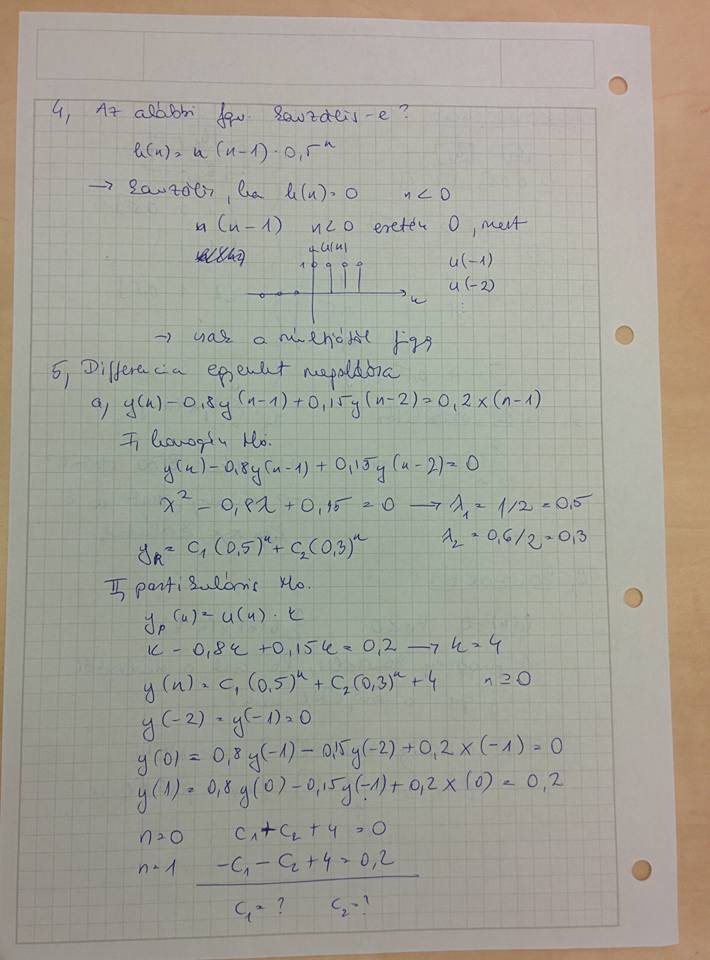 4, Az alábbi fgv. kauzális-e?
h(n) = n (n-1) · 0,5ⁿ
→ kauzális, ha h(n) = 0 n < 0
n (n-1) n < 0 esetén 0, mert
u(n)
1
n
u(-1)
u(-2)
⋮
→ csak a múlttól függ
5, Differencia egyenlet megoldása
a, y(n) - 0,8y(n-1) + 0,15y(n-2) = 0,2x(n-1)
I, homogén Mo.
y(n) - 0,8y(n-1) + 0,15y(n-2) = 0
λ² - 0,8λ + 0,15 = 0 → λ₁ = 1/2 = 0,5
λ₂ = 0,6/2 = 0,3
= C₁(0,5)ⁿ + C₂(0,3)ⁿ
II, partikuláris Mo.
yₚ(n) = u(n) · k
k - 0,8k + 0,15k = 0,2 → k = 4
y(n) = C₁(0,5)ⁿ + C₂(0,3)ⁿ + 4 n ≥ 0
y(-2) = y(-1) = 0
y(0) = 0,8y(-1) - 0,15y(-2) + 0,2x(-1) = 0
y(1) = 0,8y(0) - 0,15y(-1) + 0,2x(0) = 0,2
n=0 C₁ + C₂ + 4 = 0
n=1 -C₁ - C₂ + 4 = 0,2
C₁ = ? C₂ = ?